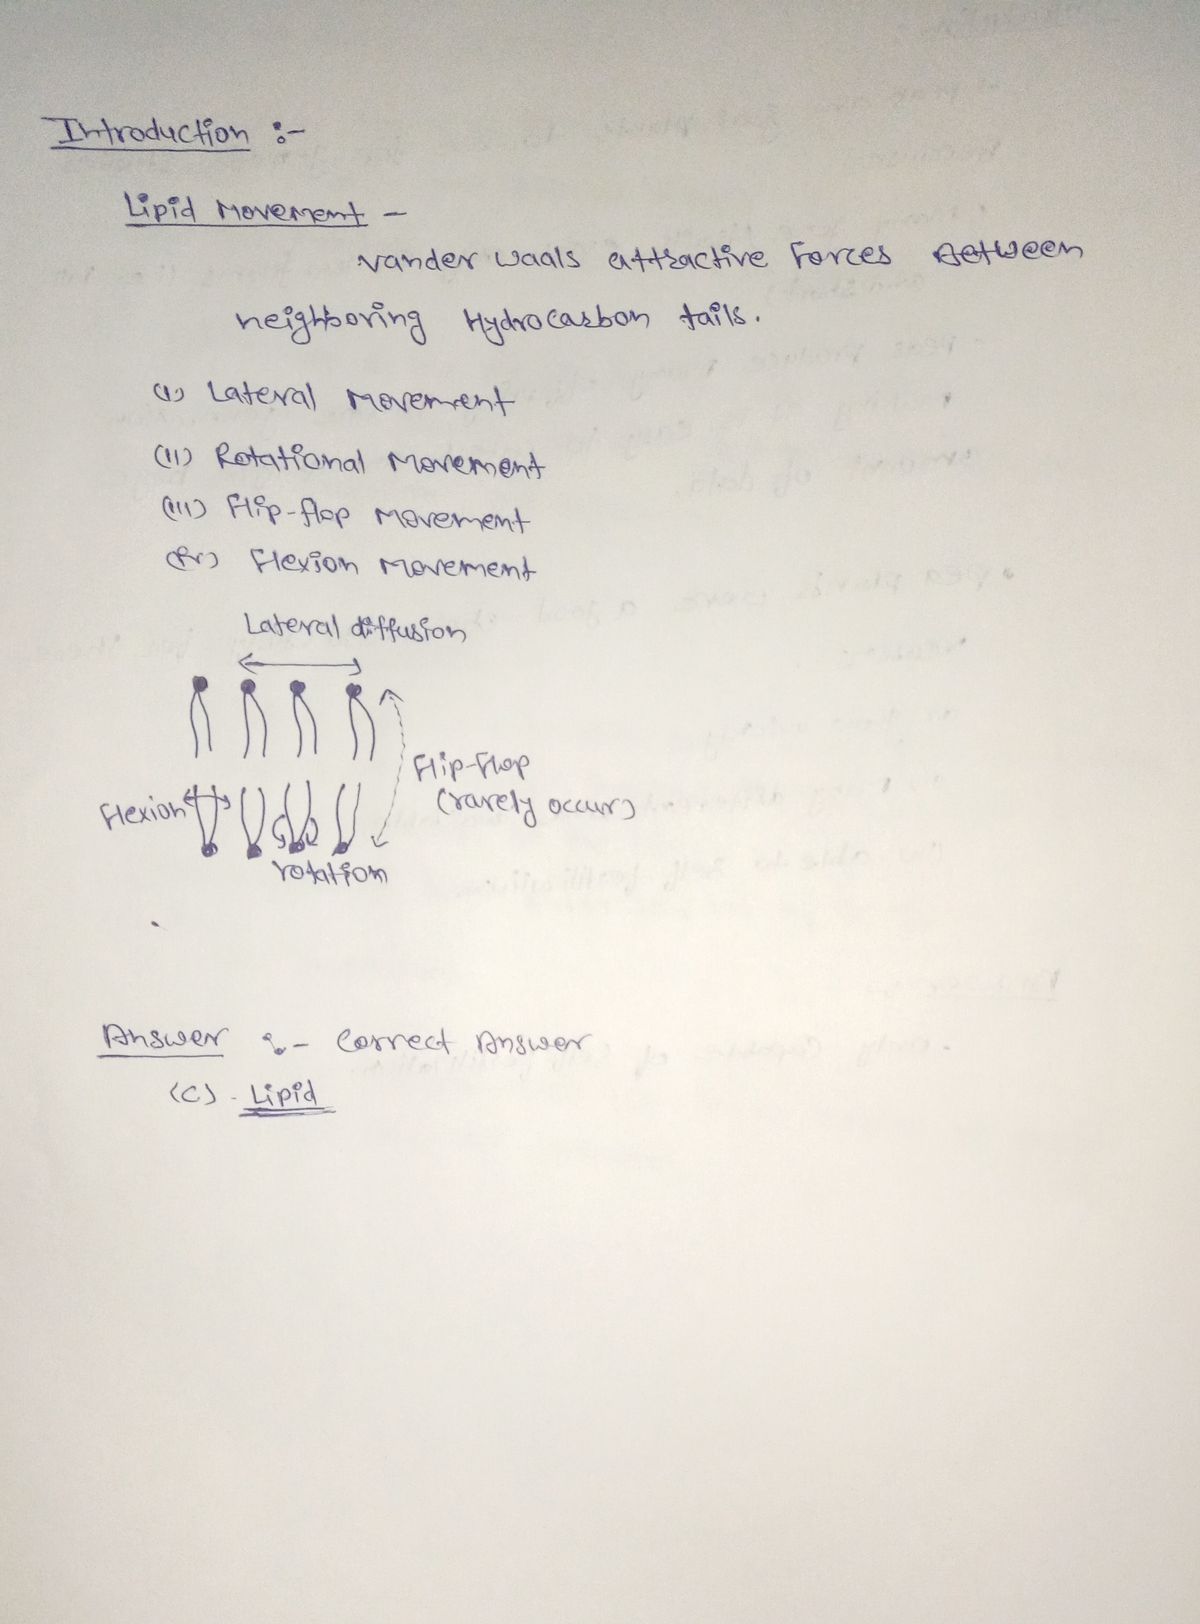 Introduction :-
Lipid Movement -
vander waals attractive Forces Between
neighboring Hydrocarbon tails.
(I) Lateral Movement
(II) Rotational Movement
(III) Flip-flop Movement
(iv) Flexion Movement
Lateral diffusion
Flip-Flop
(rarely occur)
Flexion
rotation
Answer :- Correct Answer
(C). Lipid